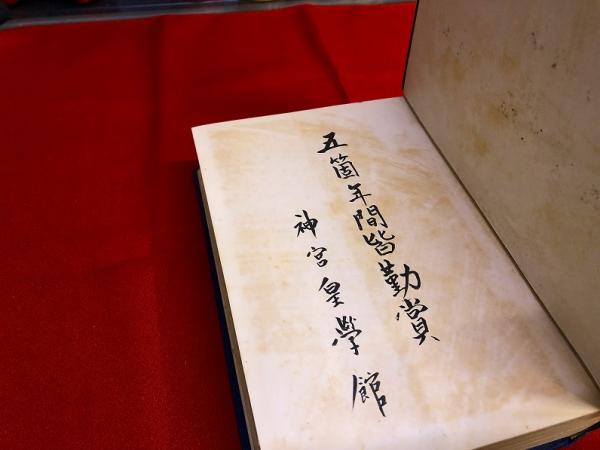 五箇年間皆勤賞
神宮皇學館